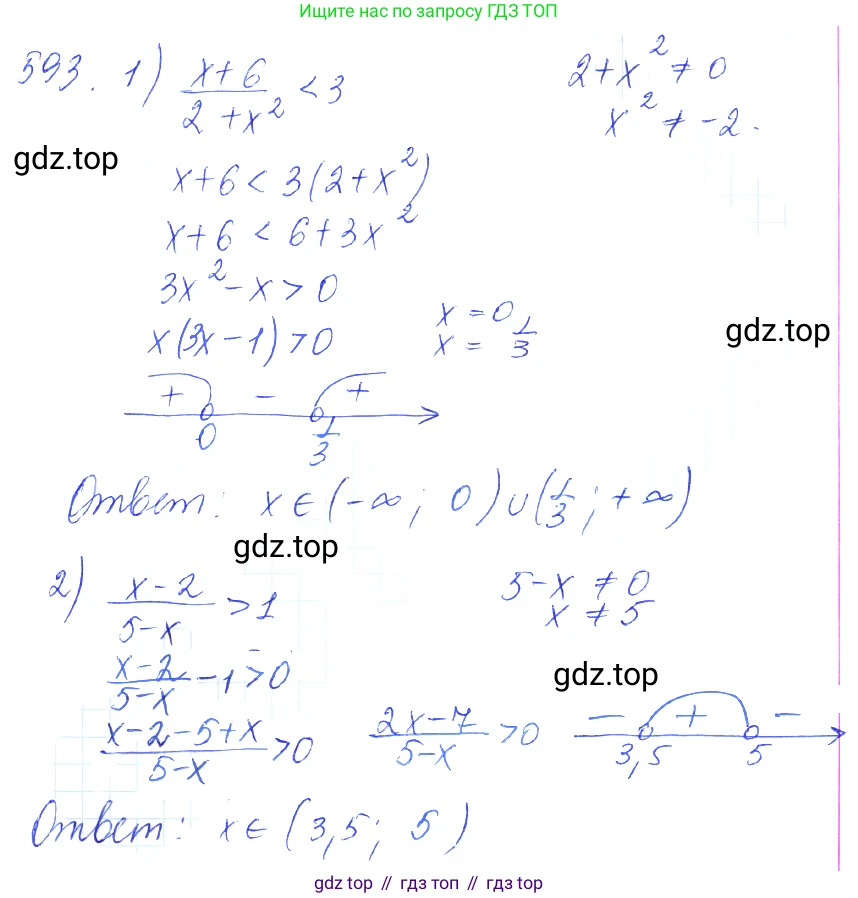 Ищите нас по запросу ГДЗ ТОП
593. 1) (x+6)/(2+x²) < 3
2+x² ≠ 0
x² ≠ -2.
gdz.top
x+6 < 3(2+x²)
x+6 < 6+3x²
3x² - x > 0
x(3x-1) > 0
x = 0
x = 1/3
gdz.top
+ - +
0 1/3
Ответ: x ∈ (-∞; 0) ∪ (1/3; +∞)
gdz.top
2) (x-2)/(5-x) > 1
5-x ≠ 0
x ≠ 5
(x-2)/(5-x) - 1 > 0
gdz.top
(x-2-5+x)/(5-x) > 0
(2x-7)/(5-x) > 0
- + -
3,5 5
Ответ: x ∈ (3,5; 5)
gdz top // гдз топ // gdz top